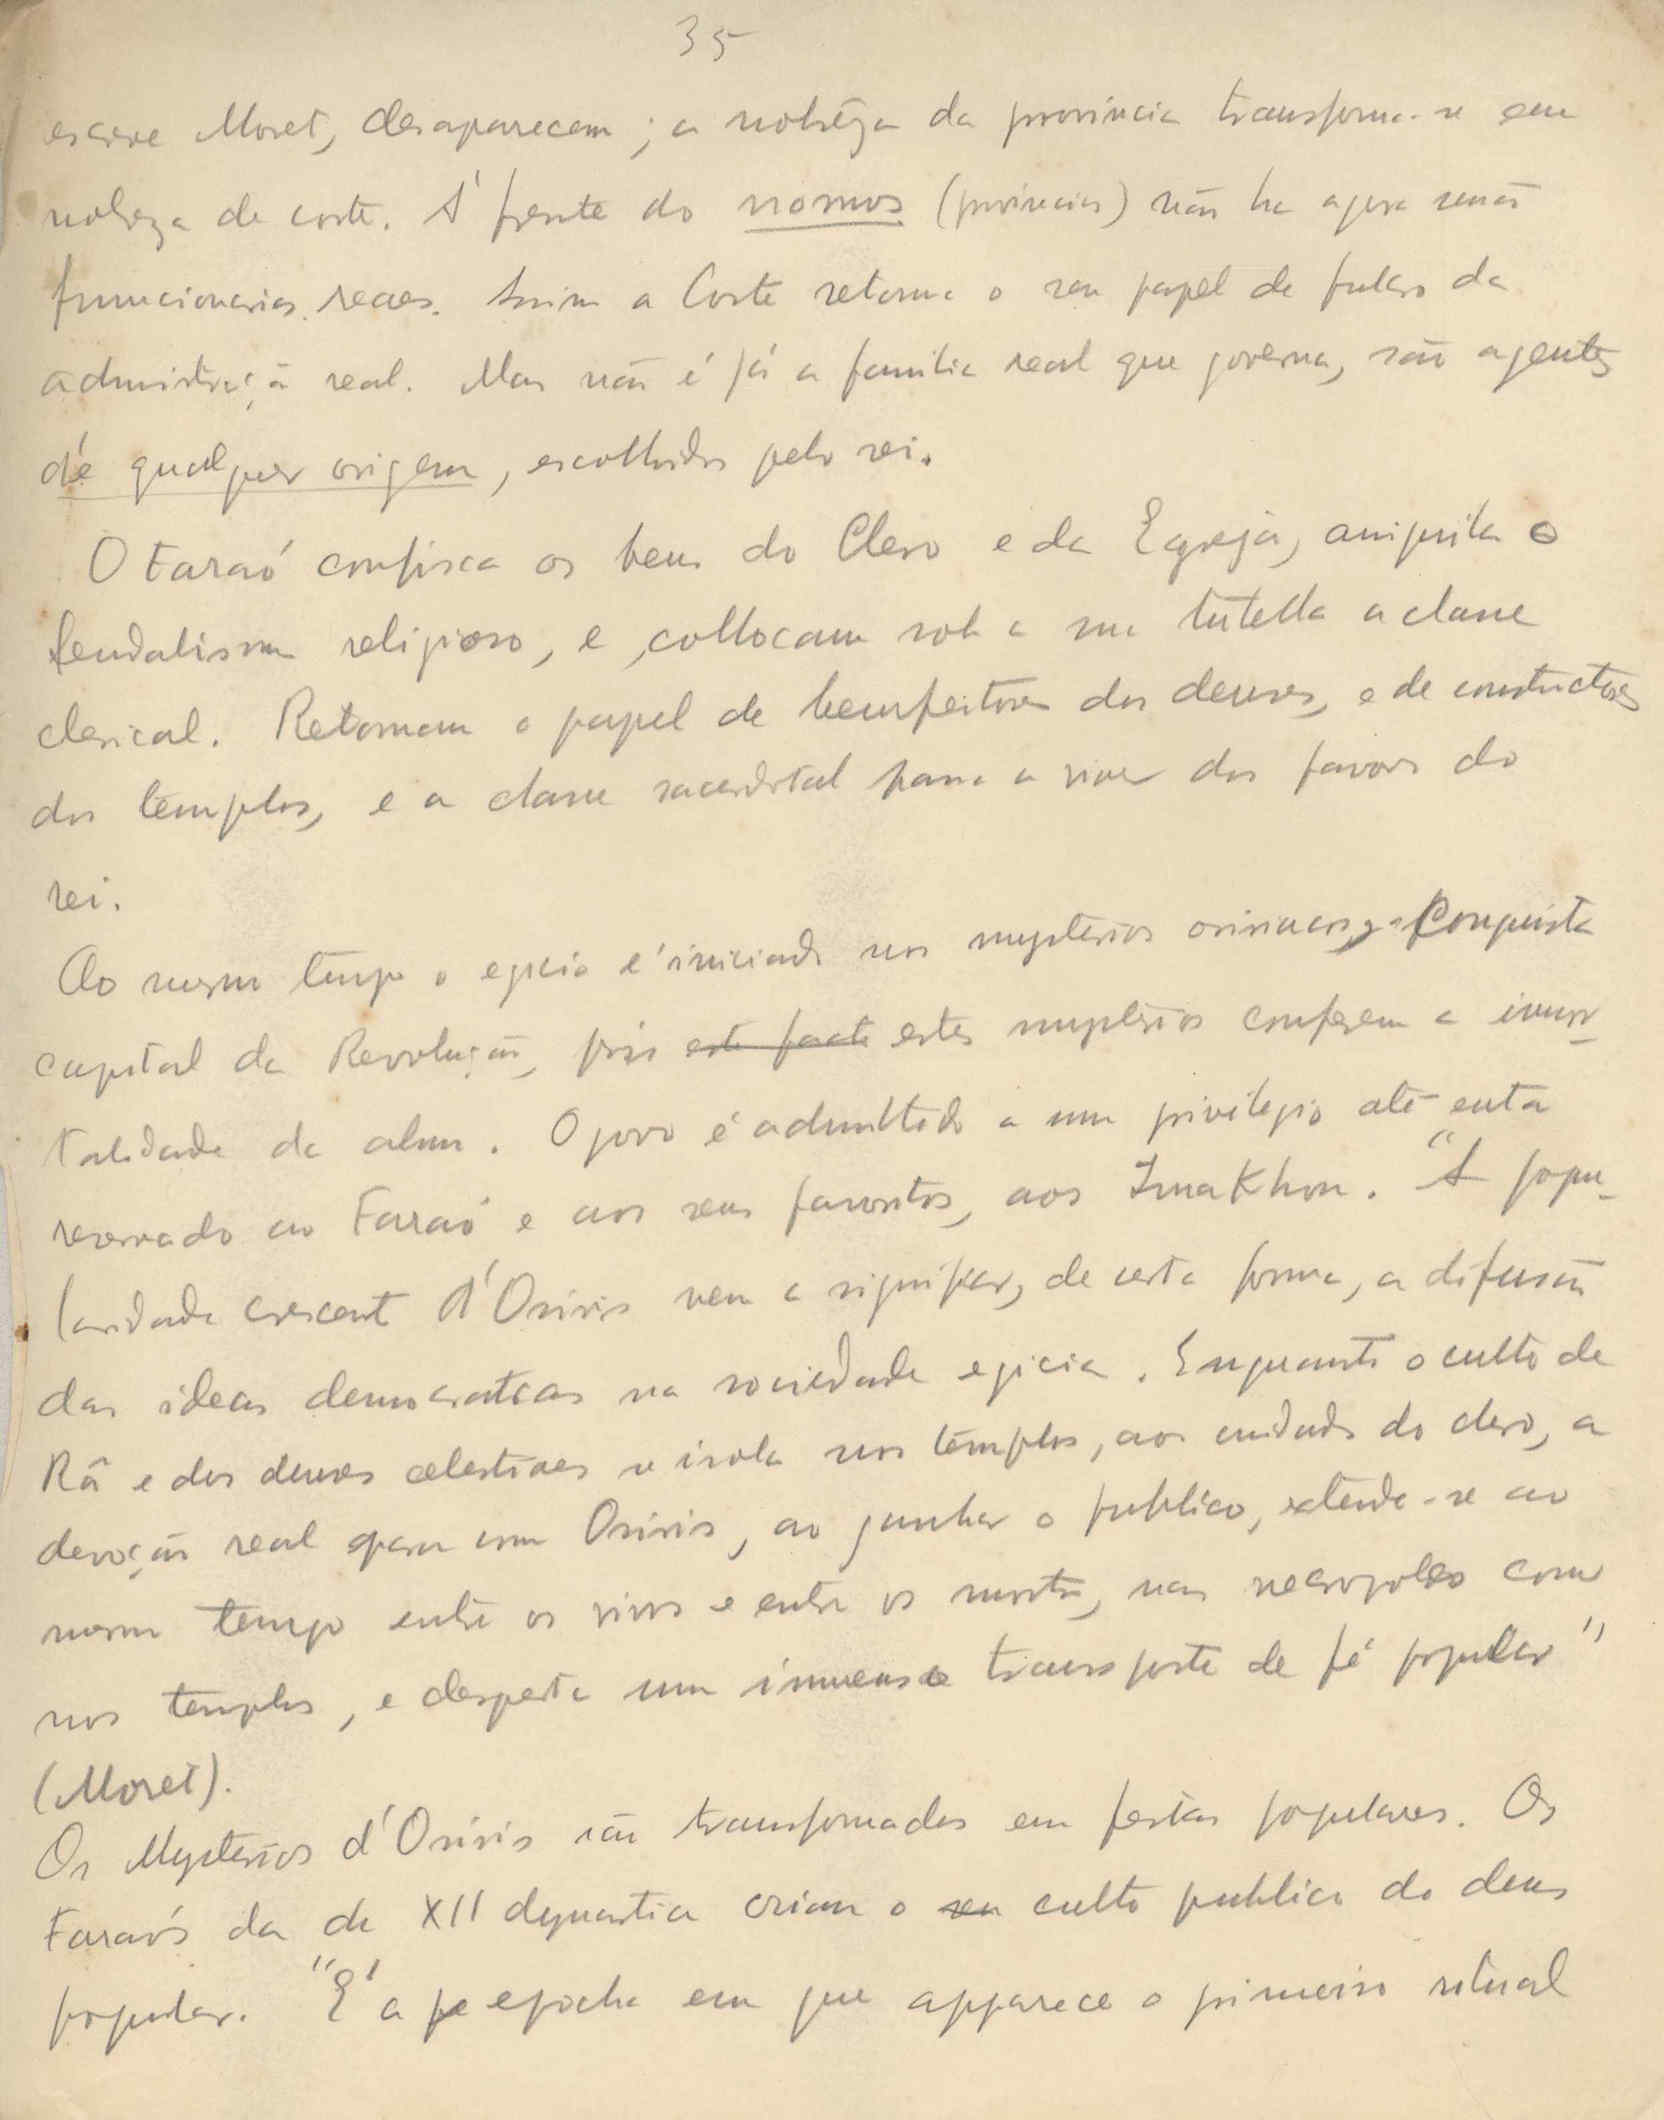 35
escreve Moret, desaparecem; a nobrêza da provincia transforma-se em
nobreza de corte. Á frente do nomos (provincias) não ha agora senão
funccionarios reaes. Assim a Corte retoma o seu papel de fulcro da
admistração real. Mas não é já a familia real que governa, são agentes
de qualquer origem, escolhidos pelo rei.
O Faraó confisca os bens do Clero e da Egreja, aniquila o
feudalismo religioso, e collocam sob a sua tutella a classe
clerical. Retomam o papel de bemfeitores dos deuses, e de constructores
dos templos, e a classe sacerdotal passa a viver dos favores do
rei.
Ao mesmo tempo o egicio é iniciado nos mysterios osirianos, Conquista
capital da Revolução, pois este facto estes mysterios conferem a immor-
talidade da alma. O povo é admittido a um privilegio até então
reservado ao Faraó e aos seus favoritos, aos Imakhou. "A popu-
laridade crescente d'Osiris vem a significar, de certa forma, a difusão
das ideas democraticas na sociedade egicia. Enquanto o culto de
Râ e dos deuses celestiaes se isola nos templos, aos cuidados do clero, a
devoção real para com Osiris, ao ganhar o publico, extende-se ao
mesmo tempo entre os vivos e entre os mortos, nas necropoles como
nos templos, e desperta um immenso transporte de fé popular"
(Moret).
Os Mysterios d'Osiris são transformados em festas populares. Os
Faraós da de XII dynastia criam o seu culto publico do deus
popular. "É a epocha em que apparece o primeiro ritual